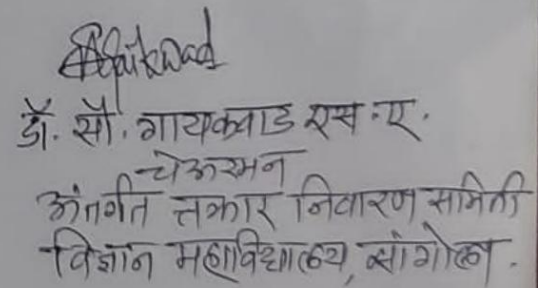 SAGaikwad
डॉ. सौ. गायकवाड एस.ए.
चेअरमन
अंतर्गत तक्रार निवारण समिती
विज्ञान महाविद्यालय, सांगोला.